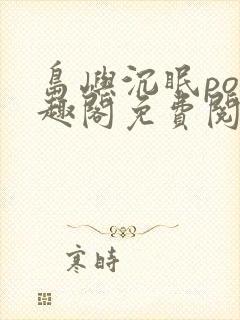 島嶼沉眠po
趣閣免費閱
寒時